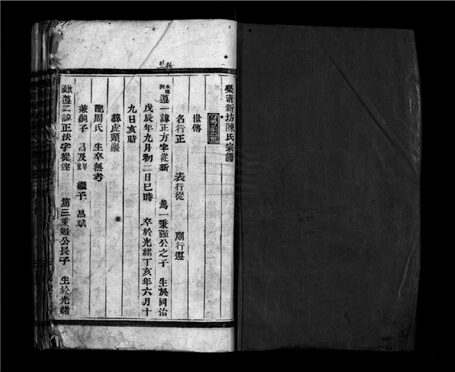 樂清新坊陳氏宗譜
世傳
名行正 表行從 廟行遵
遵一諱正方字從新 為一秉強公之子 生於同治
戊辰年九月初二日巳時 卒於光緒丁亥年六月十
九日亥時
葬虎頭巖
配周氏 生卒無考
兼祧子 昌及 繼子 昌斌
遵二諱正扶字從達 為三秉 公長子 生於光緒